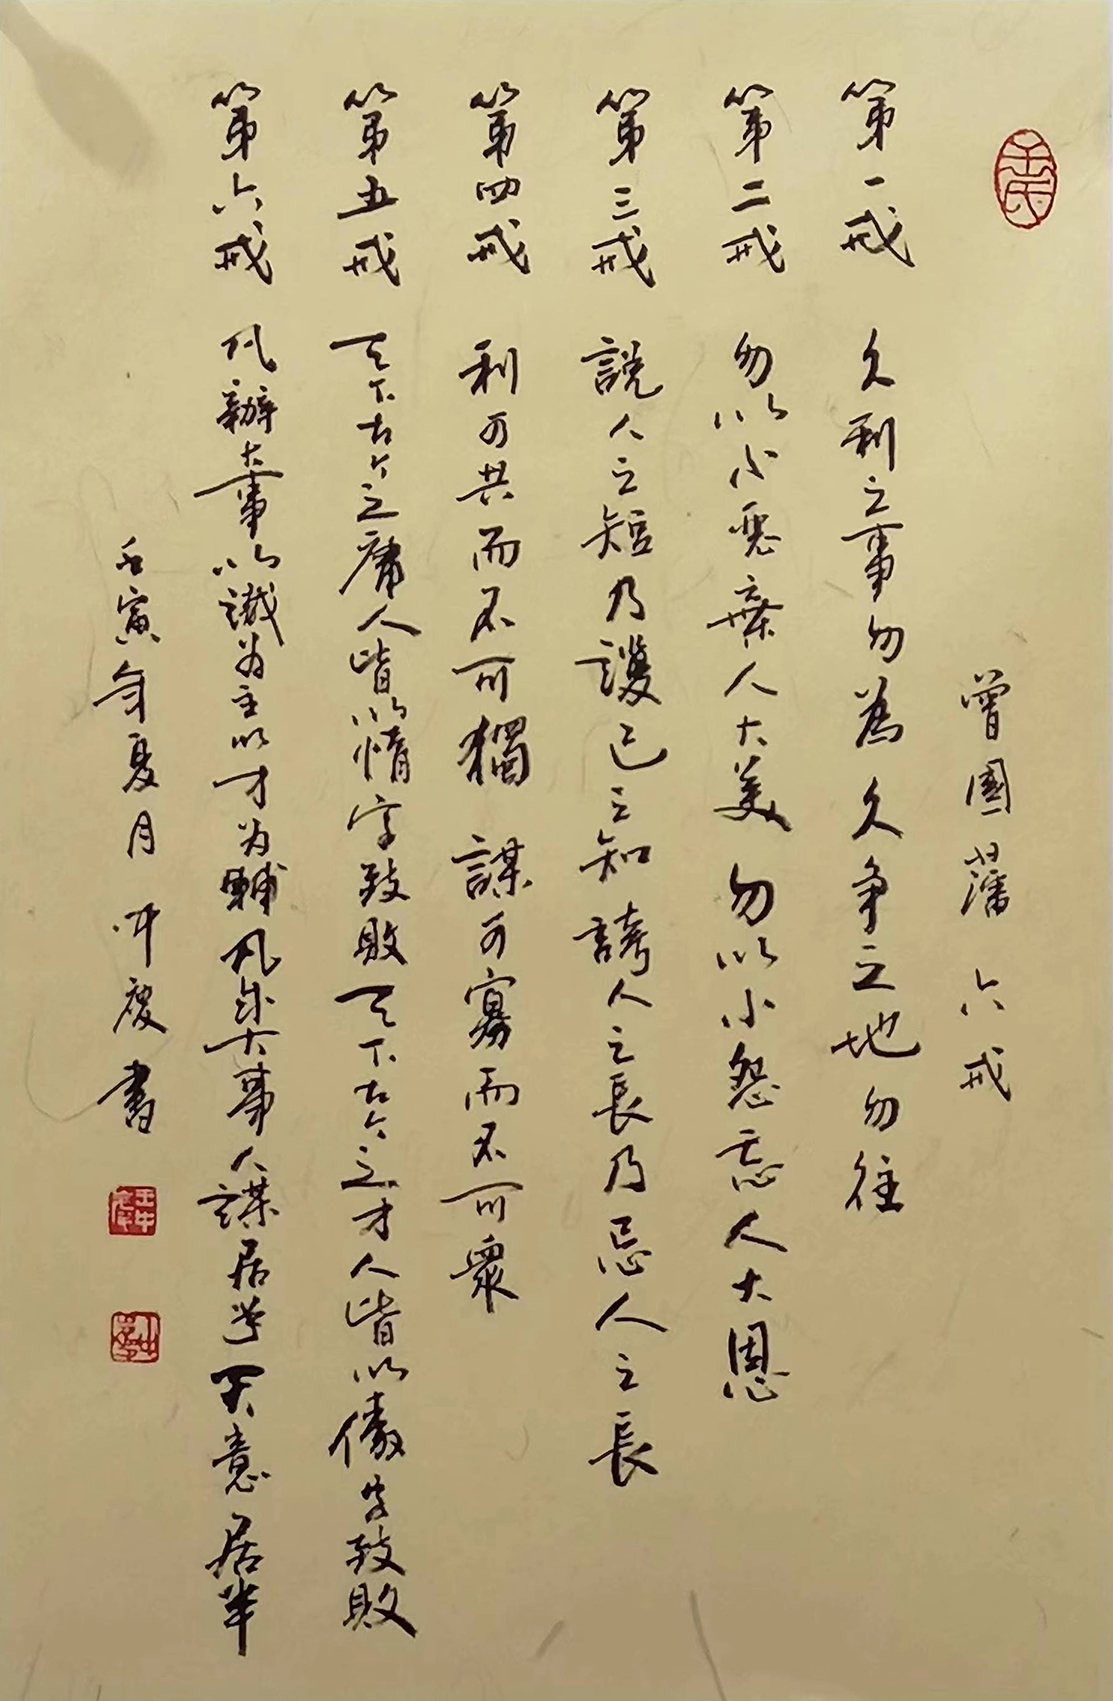 曾國藩 六戒
第一戒 久利之事勿為 久争之地勿往
第二戒 勿以小惡棄人大美 勿以小怨忘人大恩
第三戒 説人之短乃護己之知 誇人之長乃忌人之長
第四戒 利可共而不可獨 謀可寡而不可衆
第五戒 天下古今之庸人皆以惰字致敗 天下古今之才人皆以傲字致敗
第六戒 凡辦大事以識为主以才为輔 凡成大事人謀居半 天意居半
壬寅年夏月 慶書